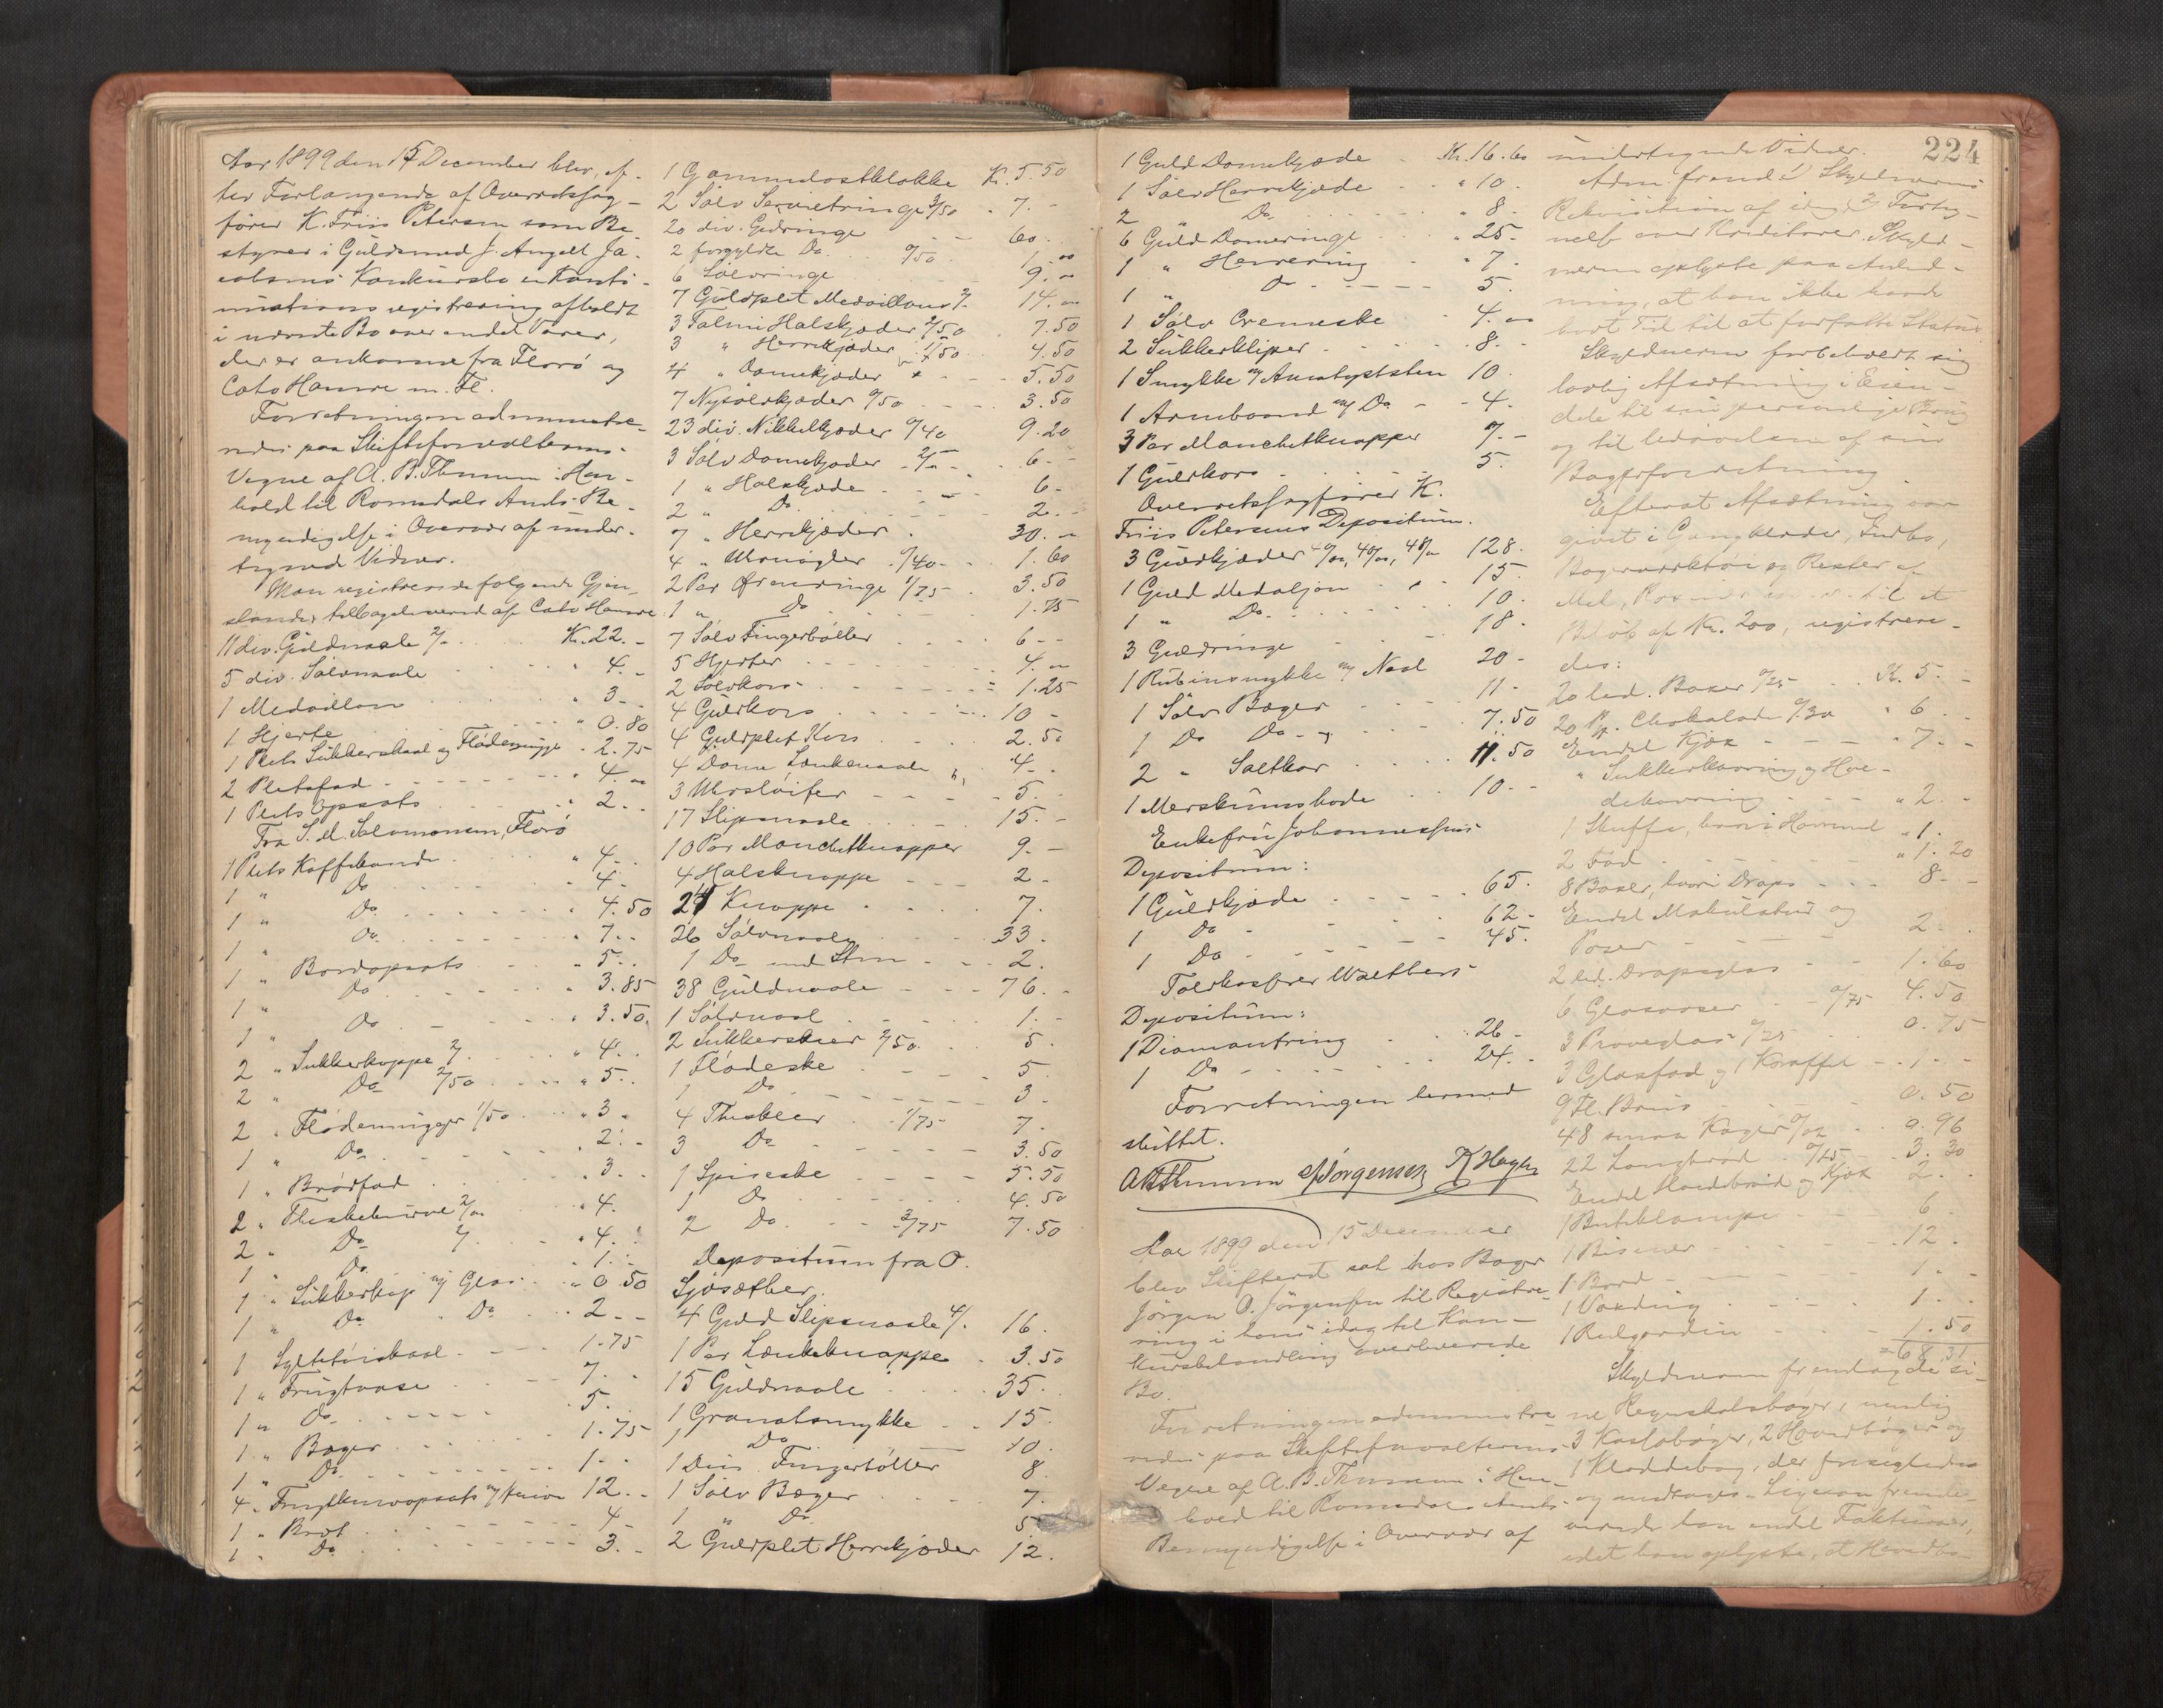 Aar 1899 den 15 December blev, ef-
ter Forlangende af Overretssag-
fører K. Friis Petersen som Be
styrer i Guldsmed J. Angell Ja-
cobsens Konkursbo en Konti-
nuations registrering afholdt
i nævnte Bo over endel Varer,
der er ankomne fra Florø og
Cato Hamre m. Fl.
Forretningen administre-
redes paa Skifteforvalterens
Vegne af A. B. Thumm i Hen-
hold til Romsdals Amts Be-
myndigelse i Overvær af under-
tegnede Vidner.
Man registrerede følgende Gjen-
stande, tilbageleveret af Cato Hamre
11 div. Guldnaale 2/- Kr. 22.-
5 div. Sølvnaale " 4.-
1 Medaillon " 3.-
1 Hjerte " 0.80
1 Plets Sukkerskaal og Flødemugge " 2.75
2 Pletsfad " 4.-
1 Plets Opsats " 2.-
Fra S. M. Salomonsen, Florø
1 Plets Kaffekande " 4.-
1 " Do " 4.-
1 " Do " 4.50
1 " Do " 7.-
1 " Bordopsats " 5.-
1 " Do " 3.85
1 " Do " 3.50
2 " Sukkerkoppe 2/- " 4.-
2 " Do 2/50 " 5.-
2 " Flødemugger 1/50 " 3.-
1 " Do " 2.-
1 " Brødfad " 3.-
2 " Theskekurve 2/- " 4.
2 " Do 2/- " 4.-
1 " Do " 1.-
1 " Sukkerkop m/ Glas " 0.50
1 " Do Do 2.-
1 Syltetøiskaal 1.75
1 " Frugtvase 7.-
1 " Do 5.-
1 " Bæger 1.75
1 " Do 1.-
4 " Frugtknivopsats m/ Knive 12.-
1 " Bræt 4
1 " Do 3.-
1 Gammelostklokke Kr. 5.50
2 Sølv Servietringe 3/50 " 7.-
20 div. Guldringe 60.
2 forgyldte Do. 0/50 1.00
6 Sølvringe 9.-
7 Guldplet Medaillons 2/- 14.-
3 Talmi Halskjæder 2/50 7.50
3 " Herrekjæder 1/50 4.50
4 " Damekjæder 5.50
7 Nysølvkjæder 0/50 3.50
23 div. Nikkelkjæder 0/40 9.20
3 Sølv Damekjæder 2/- 6.-
1 " Halskjæde 6.-
2 " Do 2.-
7 " Herrekjæder 30.-
4 " Uhrnøgler 0/40 1.60
2 Par Ørenringe 1/75 3.50
1 " Do 1.75
7 Sølv Fingerbøller 6.-
5 Hjerter 4.-
2 Sølvkors 1.25
4 Guldkors 10.-
4 Guldplet Kors 2.50
4 Dame Lænkenaale 4.-
3 Uhrsløifer 5.-
17 Slipsnaale 15.-
10 Par Manchetknapper 9.-
4 Halsknappe 2.-
24 Knappe 7.
26 Sølvnaale 33.
1 Do med Sten 2.
38 Guldnaale 76.-
1 Sølvnaal 1.-
2 Sukkerskeer 2/50 5.
1 Flødeske 5.
1 Do 3.-
4 Theskeer 1/75 7.
3 Do 3.50
1 Spiseske 5.50
1 Do 4.50
2 Do. 3/75 7.50
Depositum fra O.
Sjøsæther.
4 Guld Slipsnaale 4/- 16.
1 Par Lænkeknappe 3.50
15 Guldnaale 35.
1 Granatsmykke 15.
1 Do 10.
1 Dus. Fingerbøller 8.
1 Sølv Bæger 7.
1 " Do 5.
2 Guldplet Herrekjæder 12.
224
1 Guld Damekjæde Kr. 16.60
1 Sølv Herrekjæde " 10.
2 " Do " 8.
6 Guld Dameringe " 25.-
1 " Herrering " 7.
1 " Do 5.
1 Sølv Cremeske 4.-
2 Sukkerkliper 8.-
1 Smykke m/ Amatyststen 10.
1 Armbaand m/ Do. 4.
3 Par Manchetknapper 7.-
1 Guldkors 5.
Overretssagfører K.
Friis Petersens Depositum.
3 Guldkjæder 40/-, 40/-, 48/- 128.
1 Guld Medaljon 15.
1 " Do. 10.
3 Guldringe 18.
1 Rubinsmykke m/ Naal 20.-
1 Sølv Bæger 11.-
1 Do Do 7.50
2 " Saltkar 11.50
1 Merskumshode 10.-
Enkefru Johannessens
Depositum:
1 Guldkjæde 65.
1 Do 62.-
1 Do 45.
Toldkasserer Walthers
Depositum:
1 Diamantring 26.-
1 Do 24.-
Forretningen hermed
sluttet.
ABThumm Jørgensen
Aar 1899 den 15 December
blev Skifteret sat hos Bager
Jørgen O. Jørgensen til Registre-
ring i hans idag til Kon-
kursbehandling overleverede
Bo.
Forretningen administre-
redes paa Skifteforvalterens
Vegne af A. B. Thumm i Hen-
hold til Romsdals Amts
Bemyndigelse i Overvær af
undertegnede Vidner.
Adm. fremlå Skyldnerens
Rekvisition af idag, Forteg-
nelse over Kreditorer. Skyld-
neren oplyste paa Anled-
ning, at han ikke havde
havt Tid til at forfatte Status
Skyldneren forbeholdt sig
lovlig Afsætning i Eien-
dele til sin personlige Brug
og til Udøvelsen af sin
Bagerforretning.
Efterat Afsætning var
givet i Gangklæder, Indbo,
Bagerværktøi og Rester af
Mel, til et
Beløb af Kr. 200, registrere-
des:
20 led. Baxer 0/25 Kr. 5.-
20 Pk. Chokolade 0/30 " 6.-
Endel Kjæx " 7.-
" Sukkerkavring og Hve-
dekavring " 2.-
1 Skuffe, " 1.
2 Fad " 1.20
8 Baxer, hvori Drops 8.-
Endel Makulatur og
Poser 2.-
2 led. Dropsglas 1.60
6 Glasvaser 0/75 4.50
3 Prøveglas 0/25 0.75
3 Glasfad og 1 Karaffel 1.-
9 Fl. Brus 0.50
48 smaa Kager 0/02 0.96
22 Langbrød 0/15 3.30
Endel Hvedebrød og Kjæx 2.-
1 Butiklampe 6.-
1 Bismer 12.
1 Bord 1.-
1 Voxdug 1.-
1 Rulgardin 1.50
= 68.31
Skyldneren fremlagde si-
ne Regnskabsbøger, nemlig
3 Kassabøger, 2 Hovedbøger og
1 Kladdebog, der forsegledes
og medtages. Ligesaa fremle-
verede han endel Fakturaer,
idet han oplyste, at Hovedbo-